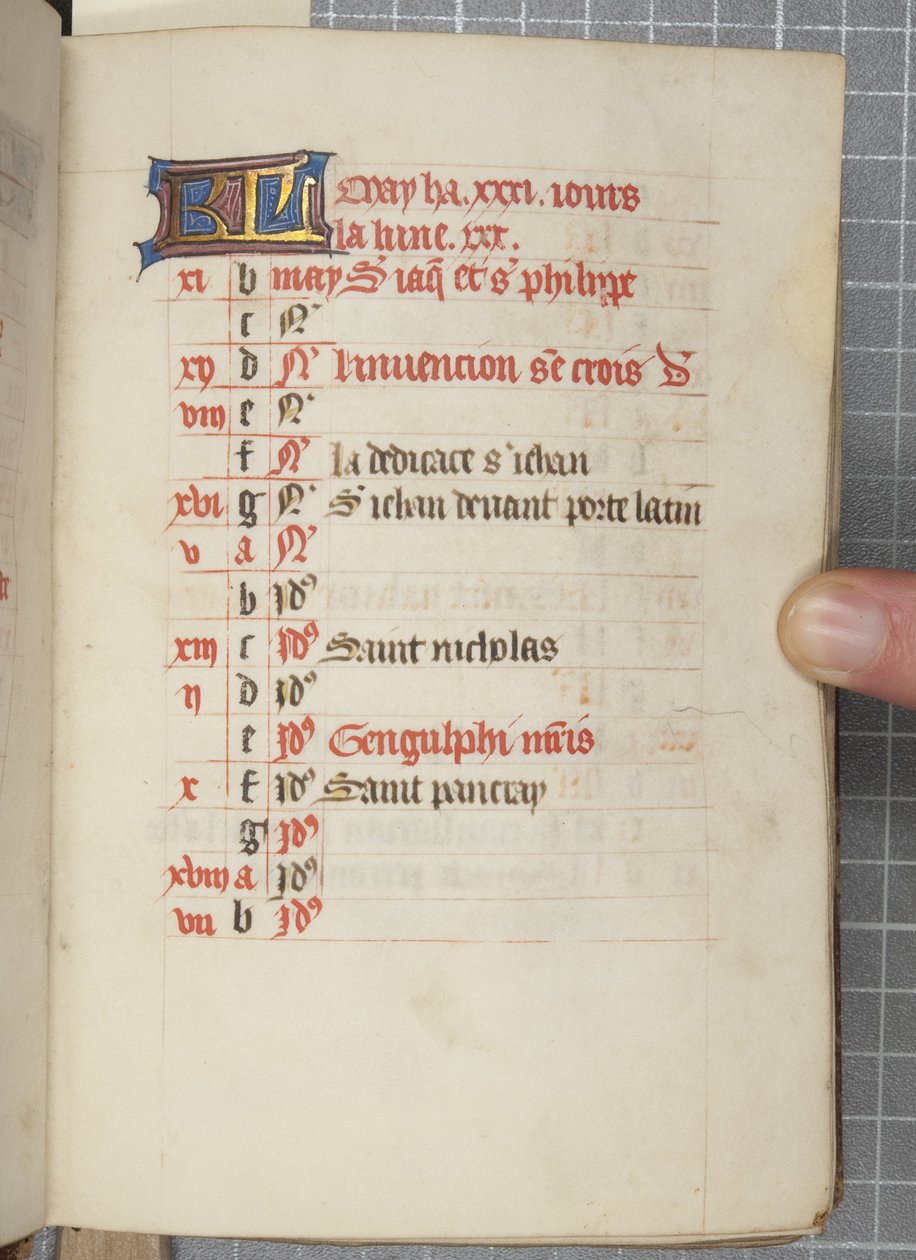 KL May ha. xxxi. iours
la lune. xxx.
xi b may S iaq̄ et s' philippe
c N'
xix d N' linuencion sē crois D
viii e N'
f N' la dedicace s' iehan
xvi g N' S' iehan deuant porte latin
v a N'
b Idꝰ
xiii c Idꝰ Saint nicholas
ii d Idꝰ
e Idꝰ Gengulphi mr̄is
x f Idꝰ Saint pancray
g Idꝰ
xviii a Idꝰ
vii b Idꝰ